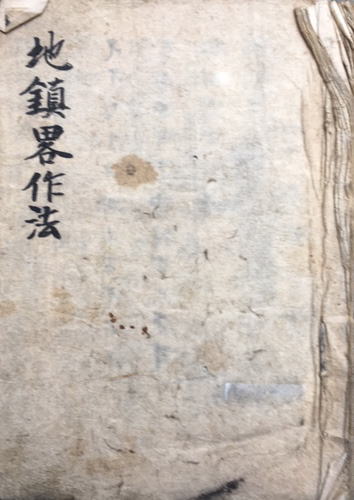 地鎮畧作法